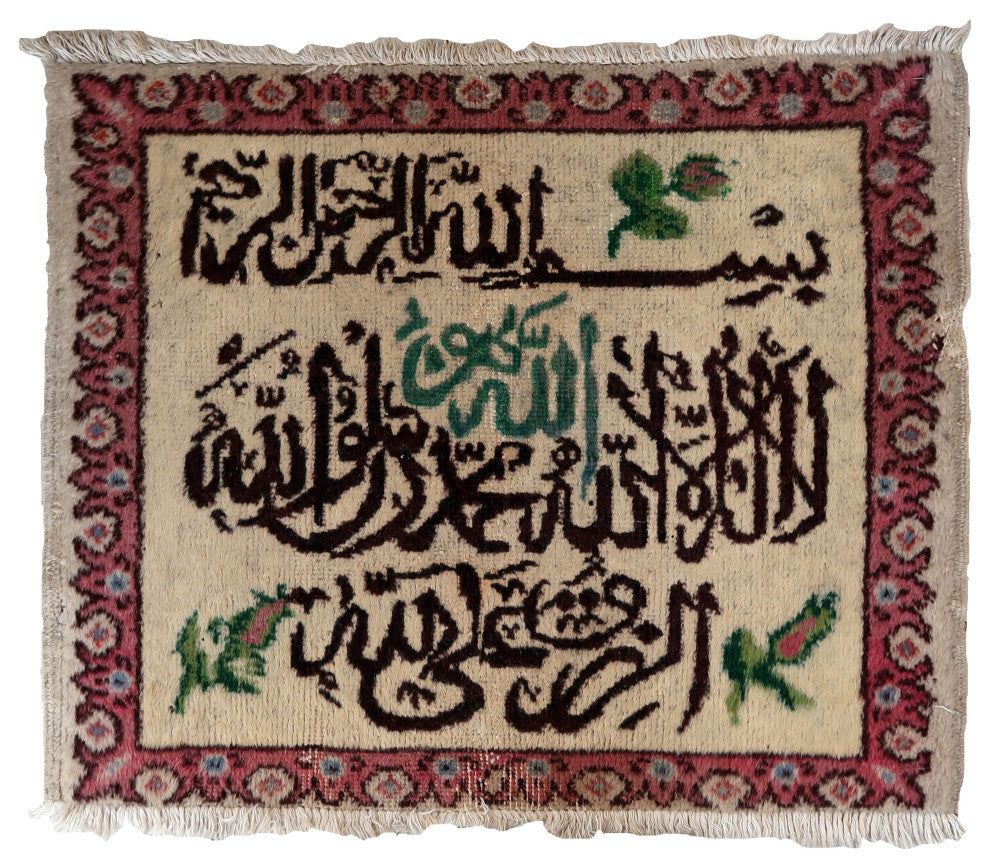 بسم الله الرحمن الرحيم
لا اله الا الله محمد رسول الله
الله
الرزق على الله